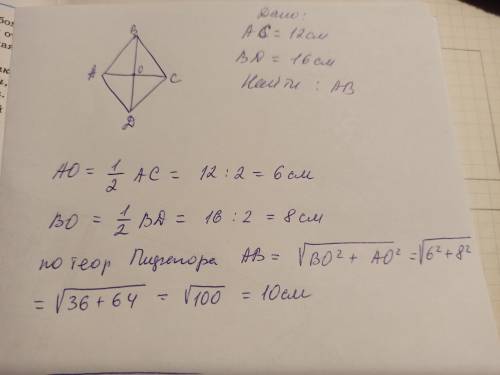 Дано:
AC = 12см
BD = 16см
Найти : AB
B
A
O
C
D
AO = 1/2 AC = 12 : 2 = 6см
BO = 1/2 BD = 16 : 2 = 8см
по теор Пифагора AB = √(BO² + AO²) = √(6² + 8²)
= √(36 + 64) = √100 = 10см